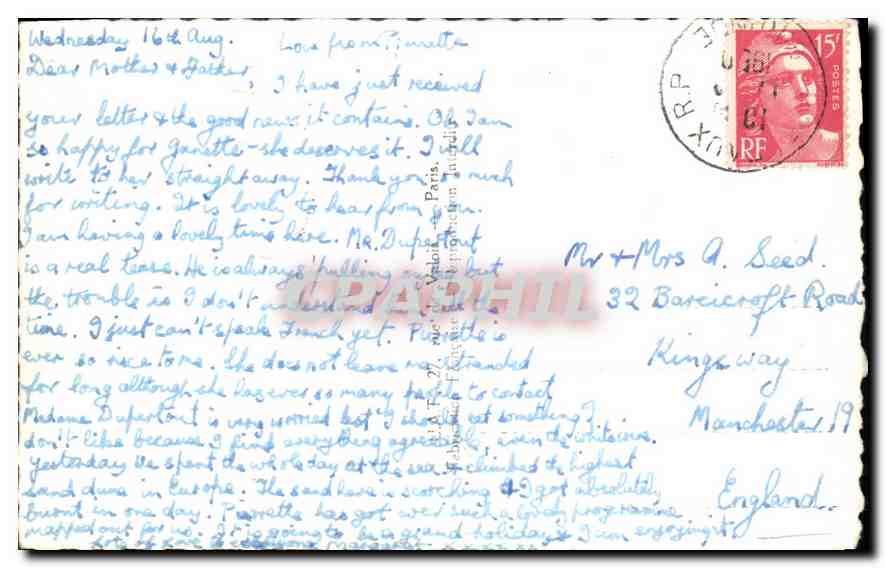 Wednesday 16th Aug. Love from Pierrette
Dear Mother & Father,
I have just received
your letter & the good news it contains. Oh I am
so happy for Ganette - she deserves it. I will
write to her straight away. Thank you so much
for writing. It is lovely to hear from you.
I am having a lovely time here. Mr. Dupertout
is a real tease. He is always pulling my but
the trouble is I don't understand all the
time. I just can't speak French yet. Pierrette is
ever so nice to me. She does not leave me stranded
for long although she has ever so many people to contact
Madame Dupertout is very worried lest I should eat something I
don't like because I find everything agreeable, even the white wine.
Yesterday we spent the whole day at the sea & climbed the highest
sand dune in Europe. The sand here is scorching & I got absolutely
burnt in one day. Pierrette has got ever such a good programme
mapped out for us. It is going to be a grand holiday & I am enjoying it
Lots of love to everyone Margaret xxxxx
Mr & Mrs A. Seed.
32 Barcicroft Road
Kingsway
Manchester 19
England.
15F
POSTES
RF
AUX R.P
CPAPHIL
27, rue de Valois - Paris.
Fabrication Française - Reproduction Interdite